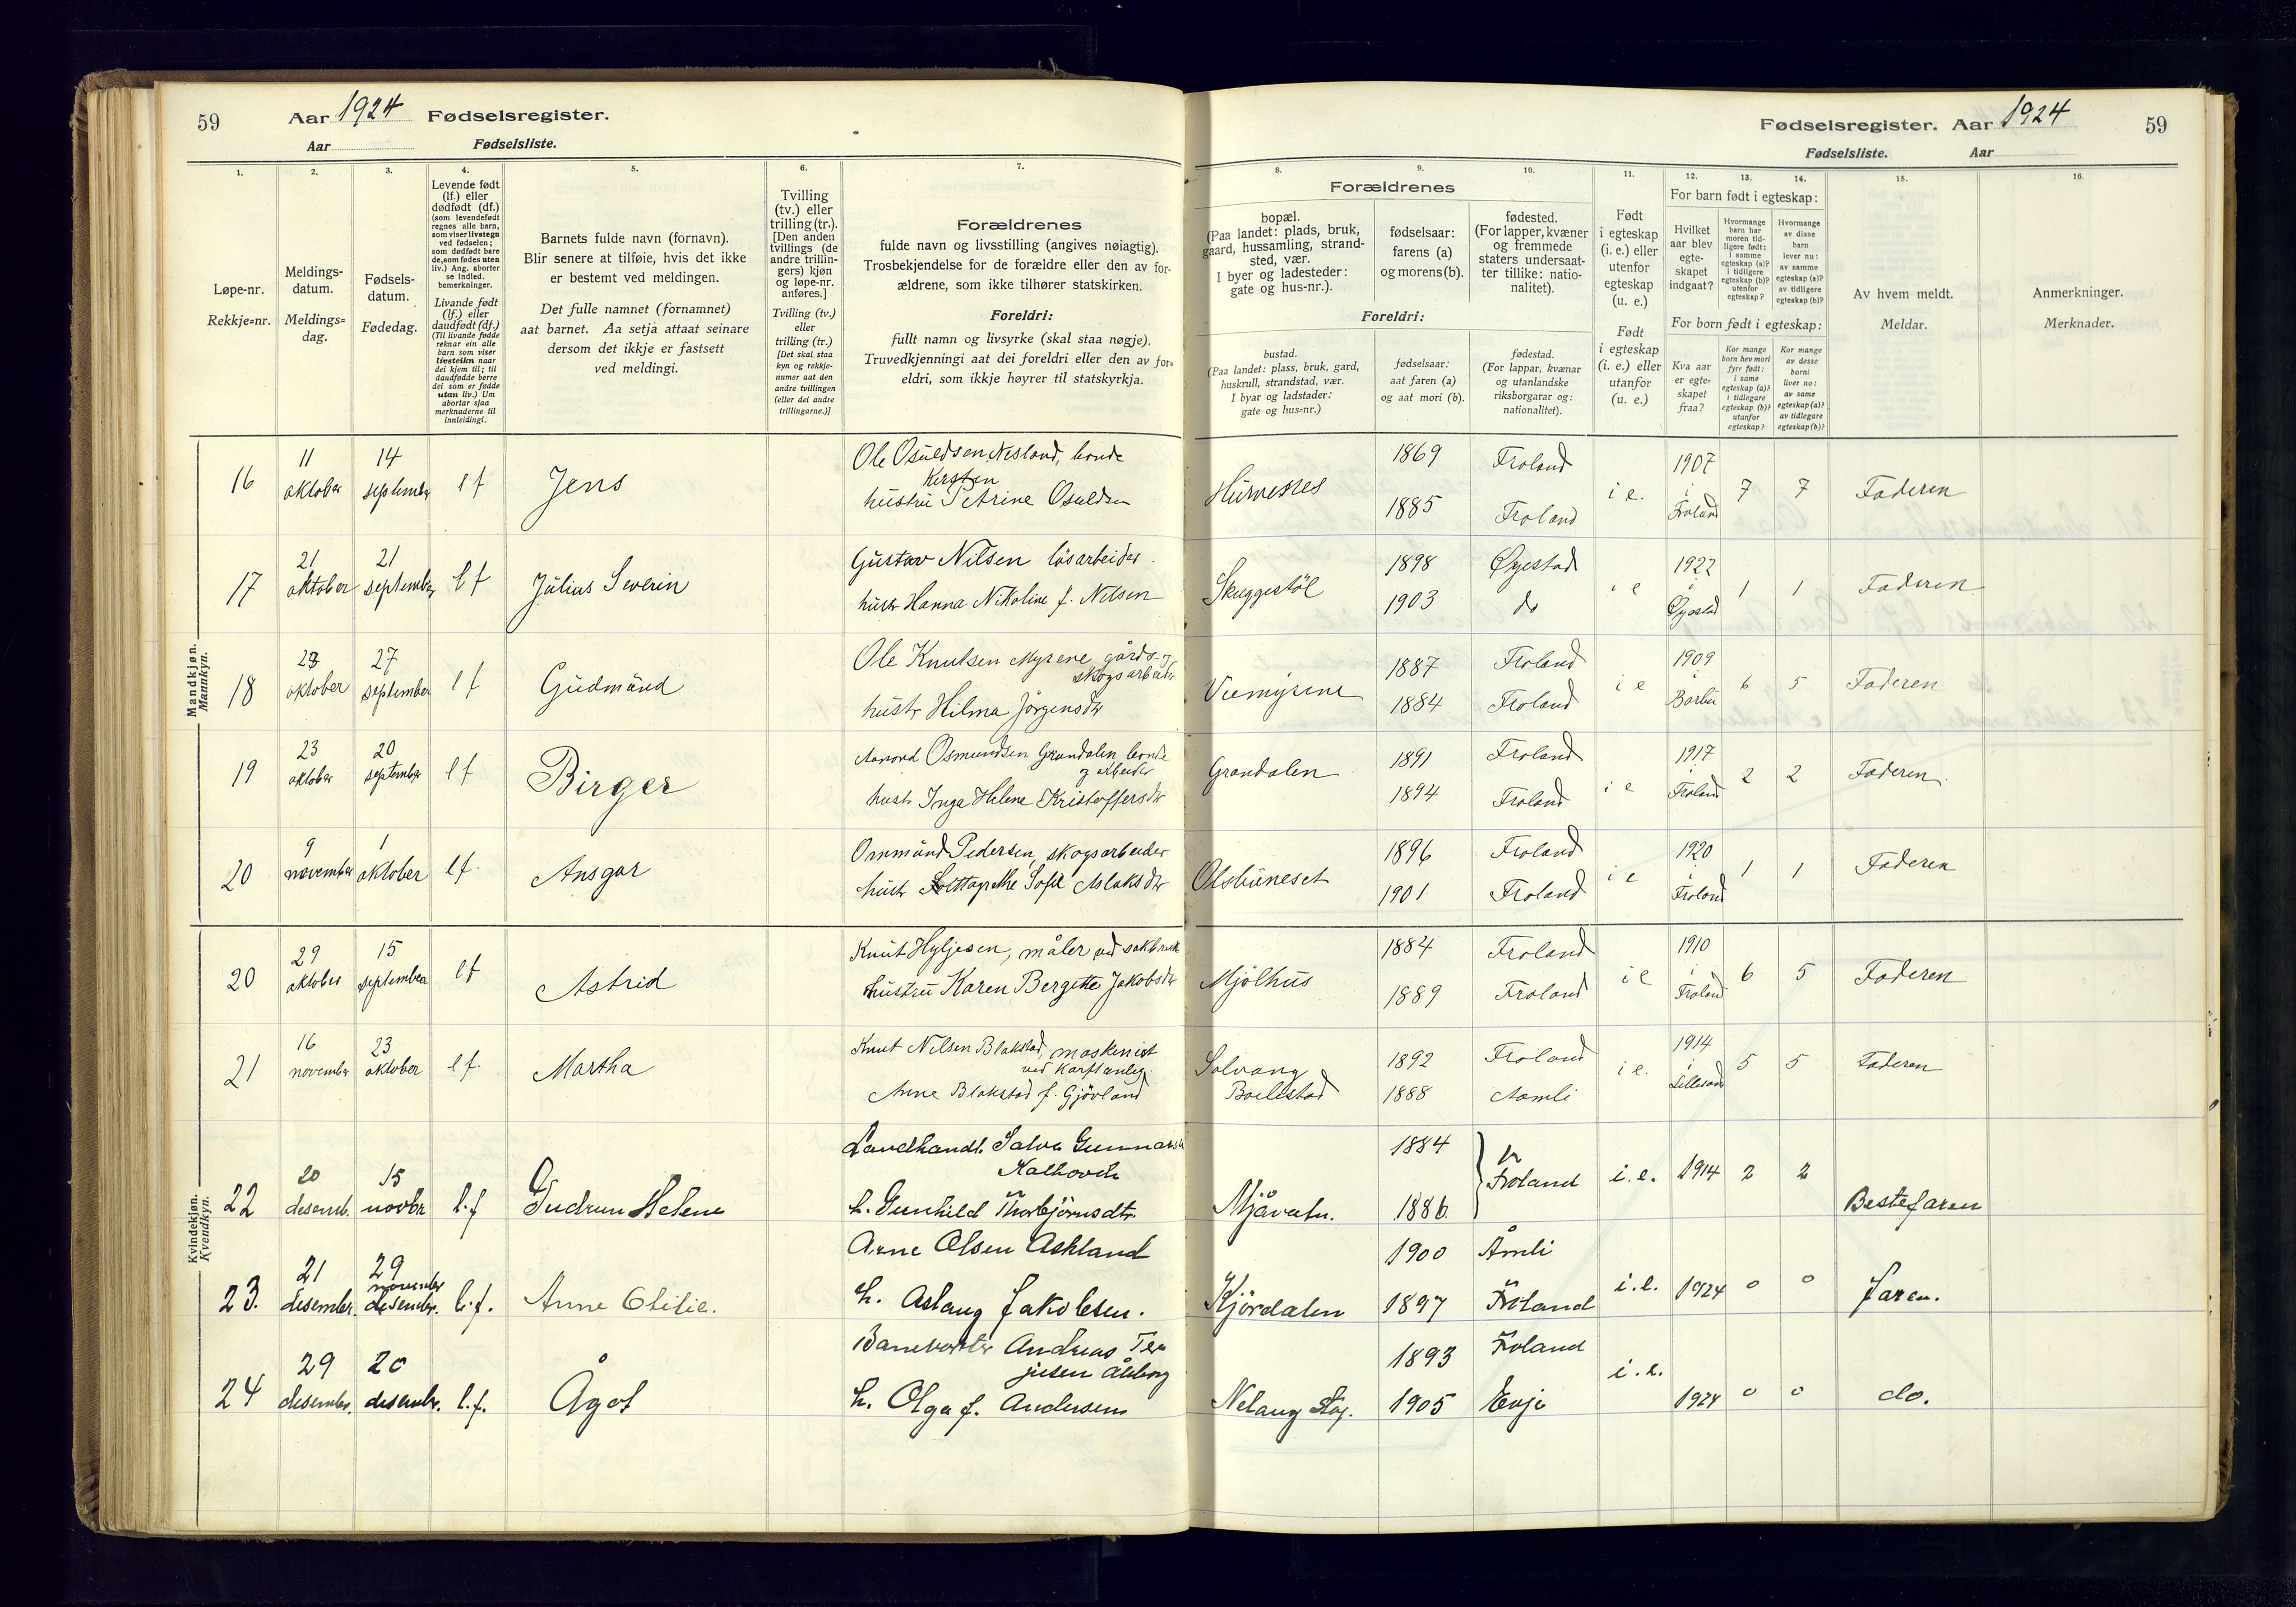 59
Aar 1924 Fødselsregister.
Aar Fødselsliste.
Fødselsregister. Aar 1924
59
Fødselsliste. Aar
1. 2. 3. 4. 5. 6. 7.
Løpe-nr.
Rekkje=nr.
Meldings-
datum.
Meldings=
dag.
Fødsels-
datum.
Fødedag.
Levende født
(lf.) eller
dødfødt (df.)
(som levendefødt
regnes alle barn,
som viser livstegn
ved fødselen;
som dødfødt bare
de, som fødes uten
liv.) Ang. aborter
se indled.
bemerkninger.
Livande født
(lf.) eller
daudfødt (df.)
(Til livande fødde
reknar ein alle
barn som viser
livsteikn naar
dei kjem til; til
daudfødde berre
dei som er fødde
utan liv.) Um
abortar sjaa
merknaderne til
innleidingi.
Barnets fulde navn (fornavn).
Blir senere at tilføie, hvis det ikke
er bestemt ved meldingen.
Det fulle namnet (fornamnet)
aat barnet. Aa setja attaat seinare
dersom det ikkje er fastsett
ved meldingi.
Tvilling
(tv.) eller
trilling (tr.).
[Den anden
tvillings (de
andre trillin-
gers) kjøn
og løpe-nr.
anføres.]
Tvilling (tv.)
eller
trilling (tr.)
[Det skal staa
kyn og rekkje-
numer aat den
andre tvillingen
(eller dei andre
trillingarne.)]
Forældrenes
fulde navn og livsstilling (angives nøiagtig).
Trosbekjendelse for de forældre eller den av for-
ældrene, som ikke tilhører statskirken.
Foreldri:
fullt namn og livsyrke (skal staa nøgje).
Truvedkjenningi aat dei foreldri eller den av for=
eldri, som ikkje høyrer til statskyrkja.
8. 9. 10. 11. 12. 13. 14. 15. 16.
Forældrenes
bopæl.
(Paa landet: plads, bruk,
gaard, hussamling, strand-
sted, vær.
I byer og ladesteder:
gate og hus-nr.).
fødselsaar:
farens (a)
og morens (b).
fødested.
(For lapper, kvæner
og fremmede
staters undersaat-
ter tillike: natio-
nalitet).
Foreldri:
bustad.
(Paa landet: plass, bruk, gard,
huskrull, strandstad, vær.
I byar og ladstader:
gate og hus=nr.)
fødselsaar:
aat faren (a)
og aat mori (b).
fødestad.
(For lappar, kvænar
og utanlandske
riksborgarar og:
nationalitet).
Født
i egteskap
(i. e.) eller
utenfor
egteskap
(u. e.)
Født
i egteskap
(i. e.) eller
utanfor
(u. e.)
For barn født i egteskap:
Hvilket
aar blev
egte-
skapet
indgaat?
Hvormange
barn har
moren tid-
ligere født:
i samme
egteskap (a)?
i tidligere
egteskap (b)?
utenfor
egteskap?
Hvormange
av disse
barn
lever nu:
av samme
egteskap (a)?
av tidligere
egteskap (b)?
For born født i egteskap:
Kva aar
er egte=
skapet
fraa?
Kor mange
born hev mori
fyrr født:
i same
egteskap (a)?
i tidlegare
egteskap (b)?
utanfor
egteskap?
Kor mange
av desse
borni
liver no:
av same
egteskap (a)?
av tidlegare
egteskap (b)?
Av hvem meldt.
Meldar.
Anmerkninger.
Merknader.
Mandkjøn.
Mannkyn.
16 11 oktober 14 september lf Jens
Ole Osuldsen Nesland, bonde
Kirsten
hustru Petrine Osuldsen
1869 Froland
1885 Froland
i e. 1907 i Froland 7 7 Faderen
17 21 oktober 21 september lf Julius Severin
Gustav Nilsen løsarbeider.
hustr Hanna Nikoline f. Nilsen
Skuggestøl
1898 Øyestad
1903 do
i e 1922 i Øyestad 1 1 Faderen
18 23 oktober 27 september lf Gudmund
Ole Knutsen Myrene gårds- og
skogsarbeider
hustr Hilma Jörgensdtr
Vremyrene
1887 Froland
1884 Froland
i e 1909 i Barbu 6 5 Faderen
19 23 oktober 20 september lf Birger
Aanond Osmundsen Grundalen bonde
og arbeider
hustr Inga Helene Kristoffersdtr
Grandalen
1891 Froland
1894 Froland
i e 1917 i Froland 2 2 Faderen
20 9 november 1 oktober lf. Ansgar
Osmund Pedersen, skogsarbeider
hustr Sofie Aslaksdtr
1896 Froland
1901 Froland
i e 1920 i Froland 1 1 Faderen
Kvindekjøn.
Kvendkyn.
20 29 oktober 15 september lf Astrid
Knut Hyljesen, måler ved sakbruk
hustru Karen Bergitte Jakobsdtr
Mjölhus
1884 Froland
1889 Froland
i e 1910 i Froland 6 5 Faderen
21 16 november 23 oktober lf. Martha
Knut Nilsen Blakstad, maskenist
ved Karftanleg.
Anne Blakstad f. Gjövland
Solvang
Boelestad
1892 Froland
1888 Aamli
i e. 1914 i Lillesand 5 5 Faderen
22 20 desemb. 15 novbr l.f Gudrun Helene
Landhandl. Salve Gunnarsen
Kalhovde
h. Gunhild Thorbjörnsdtr.
Mjåvatn.
1884
1886. Froland
i.e. 1914 2 2 Bestefaren
23. 21 desembr. 29 november desembr. l.f. Anne Otilie.
Arne Olsen Askland
h. Aslaug Jakobsen.
Kjördalen
1900 Åmli
1897 Froland
i.e. 1924 0 0 faren.
24 29 desembr. 20 desembr. l.f. Ågot
Banevokter Andreas Ter
jusen Ålborg
h. Olga f. Andersen
Nelaug St.
1893 Froland
1905 Evje
i.e. 1924 0 0 do.